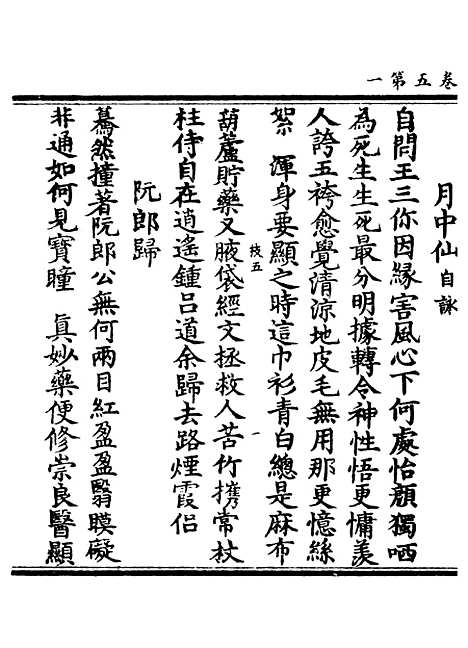 卷五第一
月中仙自詠
自問王三你因緣害風心下何處怡顏獨哂
為死生生死最分明據轉令神性悟更慵羨
人誇五袴愈覺清涼地皮毛無用那更憶絲
絮　渾身要顯之時這巾衫青白總是麻布
葫蘆貯藥又腋袋經文拯救人苦竹携常杖
柱侍自在逍遙鍾呂道余歸去路煙霞侶
阮郎歸
驀然撞著阮郎公無何兩目紅盈盈翳瞙礙
非通如何見寶瞳　真妙藥便修崇良醫顯